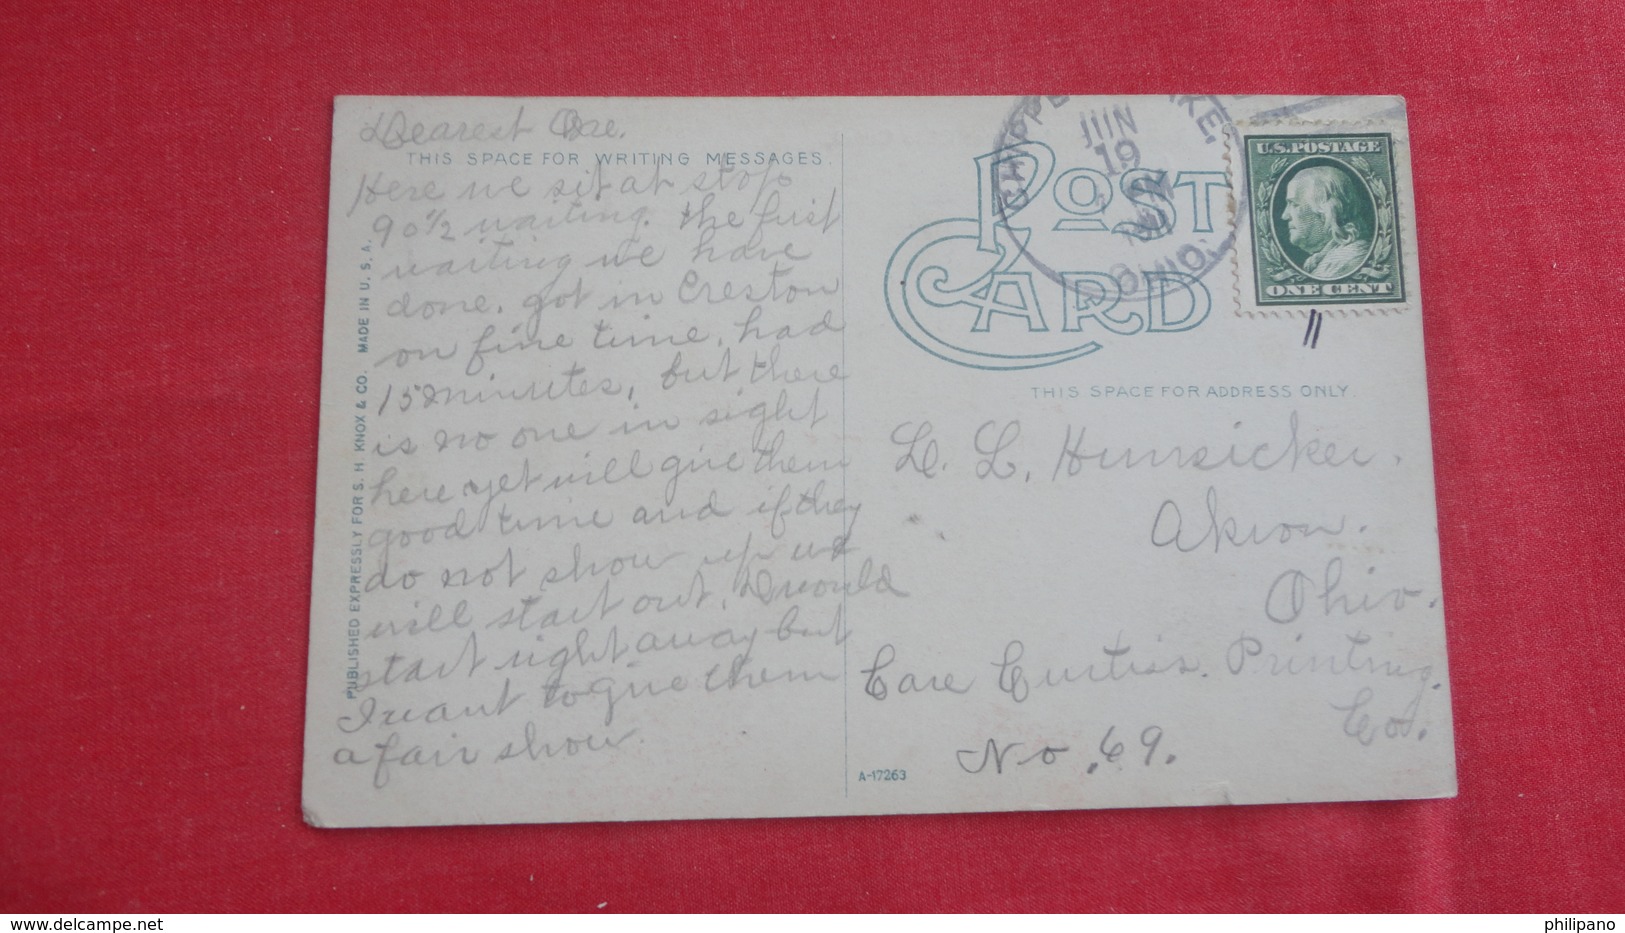 Dearest
THIS SPACE FOR WRITING MESSAGES.
Here we sit at stop
90½ waiting. the first
waiting we have
done. got in Creston
on fine time. had
15 minutes, but there
is no one in sight
here yet will give them
good time and if they
do not show up we
will start out. I would
start right away but
I want to give them
a fair show.
PUBLISHED EXPRESSLY FOR S. H. KNOX & CO. MADE IN U. S. A.
A-17263
POST
CARD
THIS SPACE FOR ADDRESS ONLY
JUN
19
OHIO.
U.S. POSTAGE
ONE CENT
L. L. Hunsicker.
Akron.
Ohio.
Care Curtiss. Printing.
Co.
No. 69.
delcampe.net
philipano